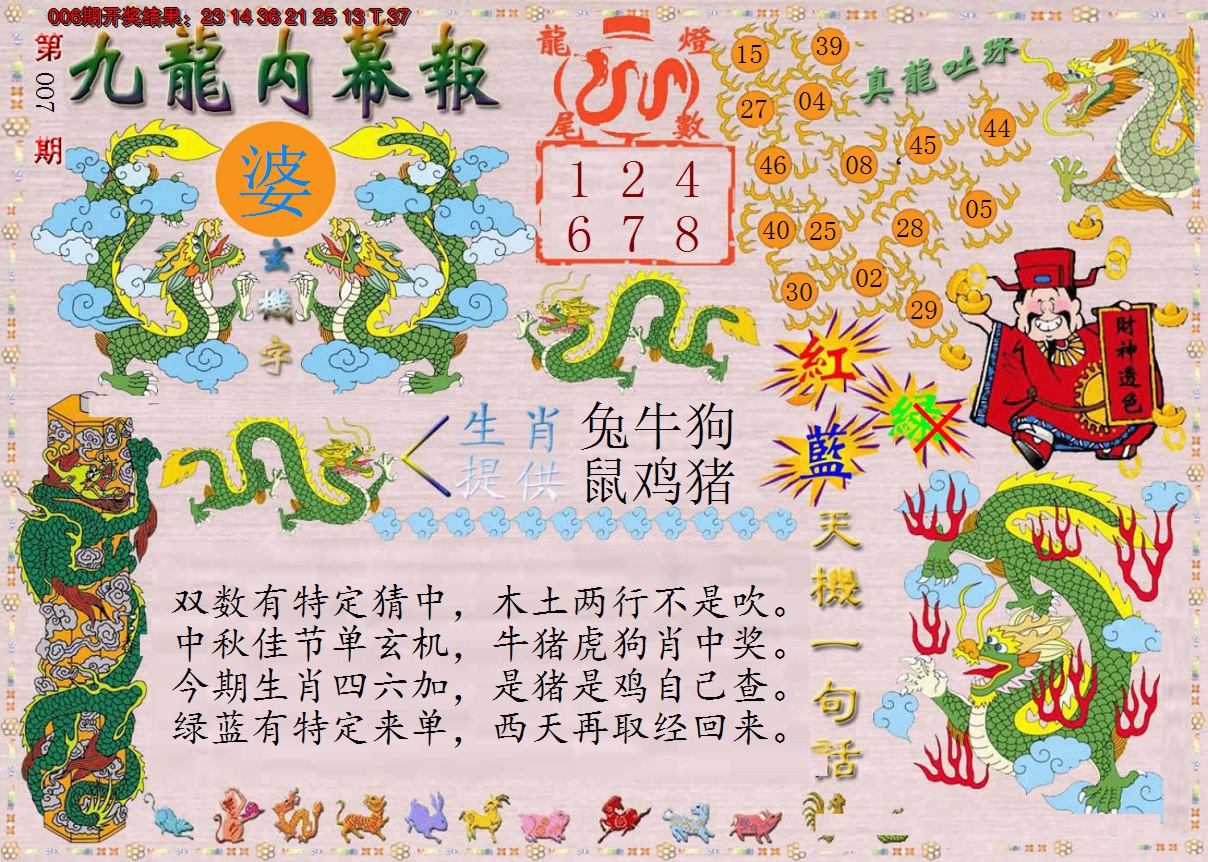 006期开奖结果：23 14 36 21 25 13 T 37
第007期
九龍内幕報
婆
玄機字
龍燈
尾數
1 2 4
6 7 8
真龍吐珠
15
39
27
04
46
08
45
44
40
25
28
05
30
02
29
紅
綠
藍
財神透色
生肖
提供
兔牛狗
鼠鸡猪
天機一句話
双数有特定猜中，木土两行不是吹。
中秋佳节单玄机，牛猪虎狗肖中奖。
今期生肖四六加，是猪是鸡自己查。
绿蓝有特定来单，西天再取经回来。